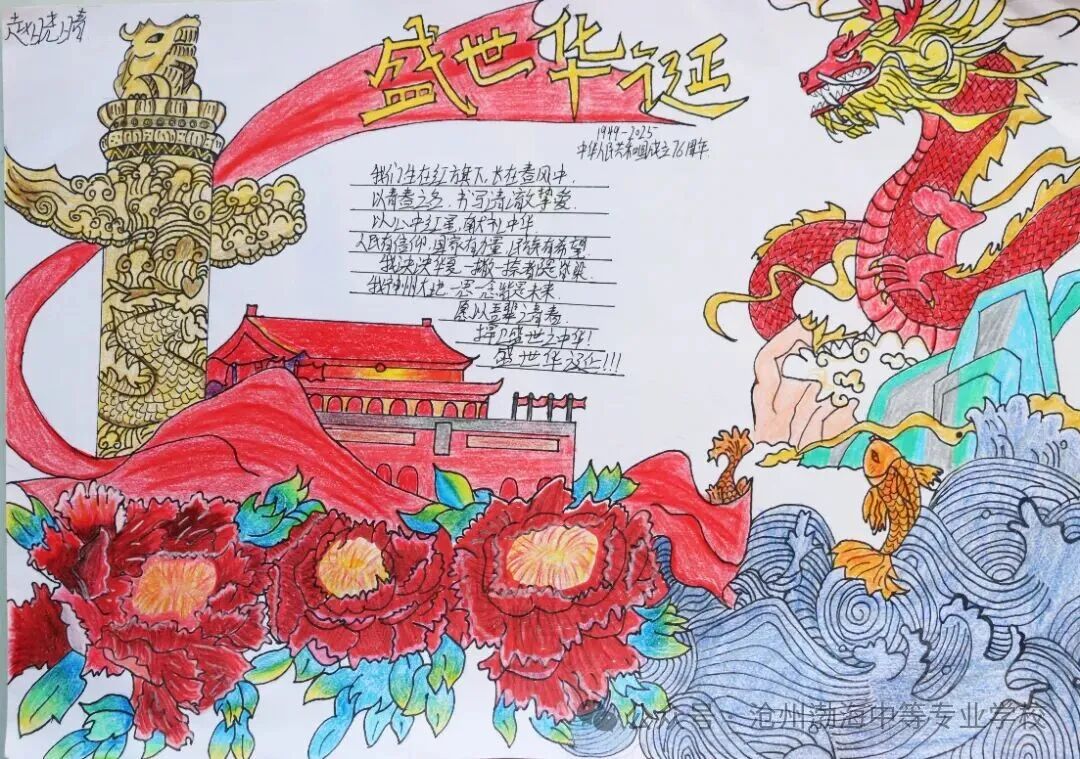 赵晓晴
盛世华诞
1949-2025
中华人民共和国成立76周年
我们生在红旗下,长在春风中.
以青春之名,书写清澈挚爱.
以心中红星,献礼中华
人民有信仰,国家有力量,民族有希望.
我泱泱华夏,一撇一捺都是脊梁.
我神州大地,一思一念皆是未来.
愿以吾辈之青春
捍卫盛世之中华!
盛世华诞!!!
公众号·沧州渤海中等专业学校